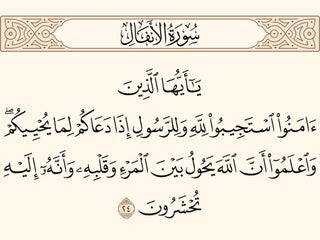 سُورَةُ الأَنفَالِ
يَـٰٓأَيُّهَا ٱلَّذِينَ
ءَامَنُوا۟ ٱسْتَجِيبُوا۟ لِلَّهِ وَلِلرَّسُولِ إِذَا دَعَاكُمْ لِمَا يُحْيِيكُمْ ۖ
وَٱعْلَمُوٓا۟ أَنَّ ٱللَّهَ يَحُولُ بَيْنَ ٱلْمَرْءِ وَقَلْبِهِۦ وَأَنَّهُۥٓ إِلَيْهِ
تُحْشَرُونَ ٢٤